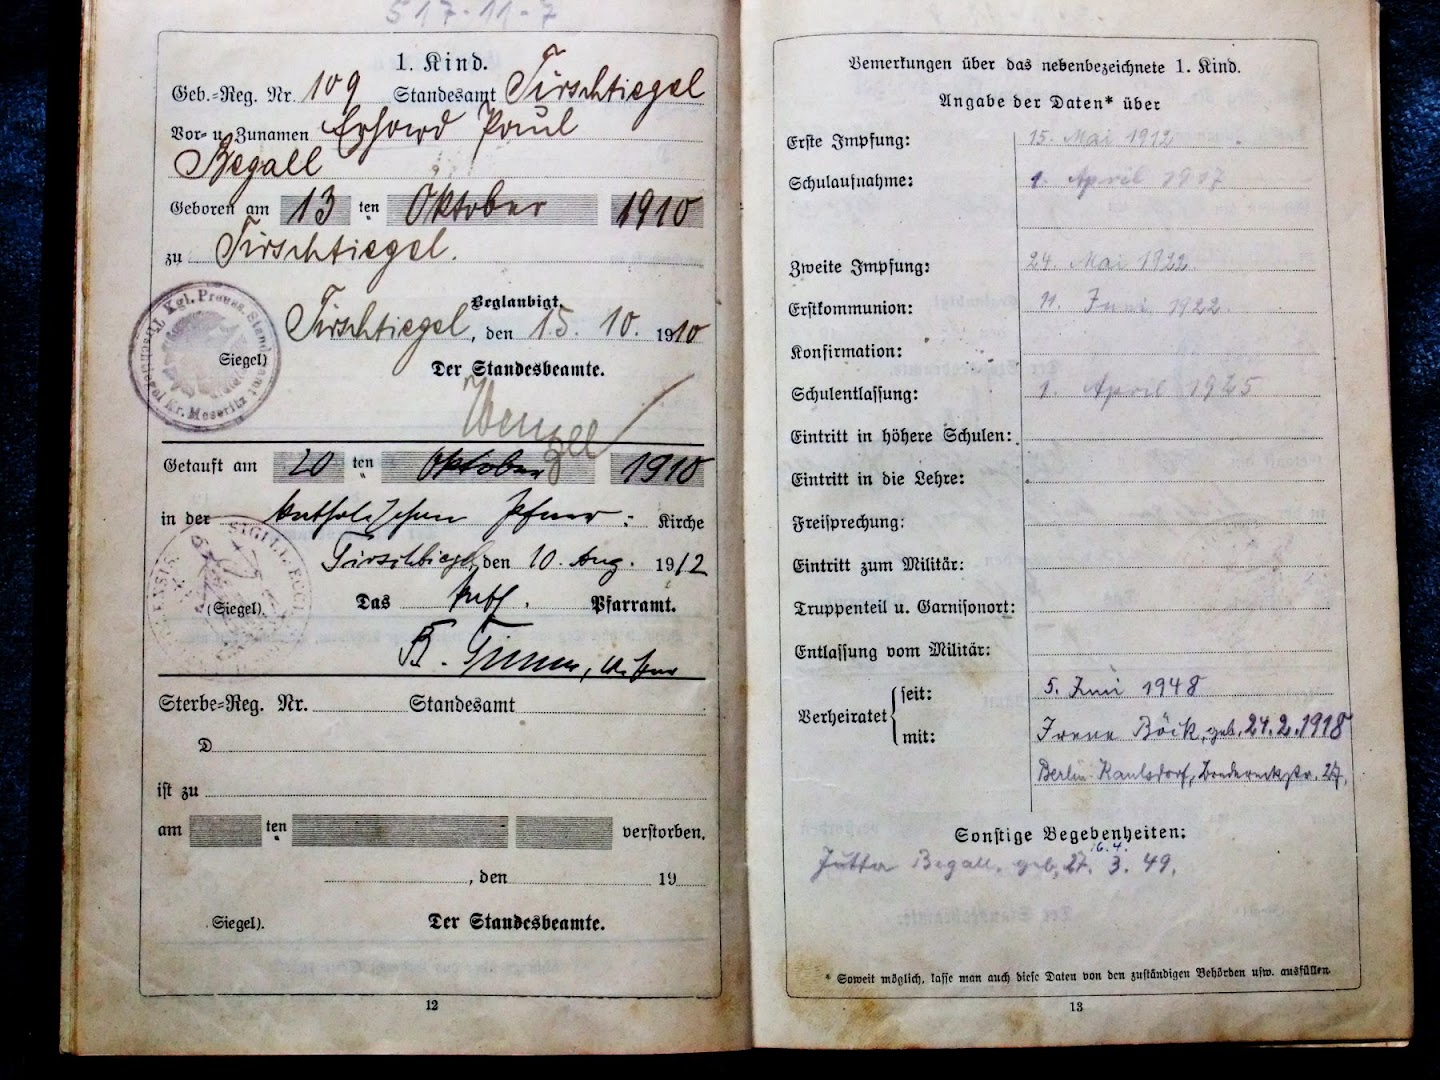 517-11-7
1. Kind.
Geb.-Reg. Nr. 109 Standesamt Tirschtiegel
Vor- u. Zunamen Erhard Paul
Begall
Geboren am 13 ten Oktober 1910
zu Tirschtiegel.
Beglaubigt.
Tirschtiegel, den 15. 10. 1910
Siegel)
Kgl. Preuss. Standesamt
Kr. Meseritz
Der Standesbeamte.
Wenzel
Getauft am 20 ten Oktober 1910
in der katholischen Pfarr- Kirche
SIGILL. ECCL
ENSIS
Tirschtiegel, den 10. Aug. 1912
(Siegel).
Das kath. Pfarramt.
B.
Sterbe-Reg. Nr. Standesamt
D
ist zu
am ten verstorben.
, den 19
Siegel).
Der Standesbeamte.
12
Bemerkungen über das nebenbezeichnete 1. Kind.
Angabe der Daten* über
Erste Impfung: 15. Mai 1912
Schulaufnahme: 1. April 1917
Zweite Impfung: 24. Mai 1922.
Erstkommunion: 11. Juni 1922.
Konfirmation:
Schulentlassung: 1. April 1925
Eintritt in höhere Schulen:
Eintritt in die Lehre:
Freisprechung:
Eintritt zum Militär:
Truppenteil u. Garnisonort:
Entlassung vom Militär:
Verheiratet seit: 5. Juni 1948
mit: Irene Böck, geb. 24.2.1918
Berlin-Kaulsdorf, 27,
Sonstige Begebenheiten:
16.4.
Jutta Begall, geb. 27. 3. 49.
* Soweit möglich, lasse man auch diese Daten von den zuständigen Behörden usw. ausfüllen.
13